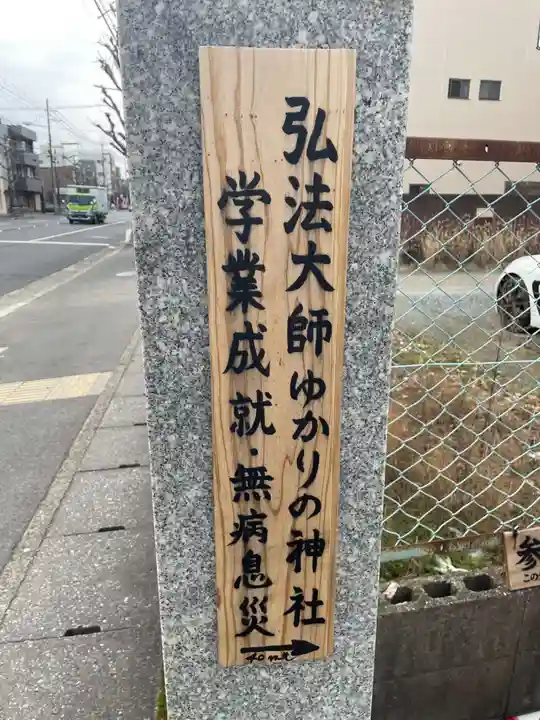 弘法大師ゆかりの神社
学業成就・無病息災
→
参
この